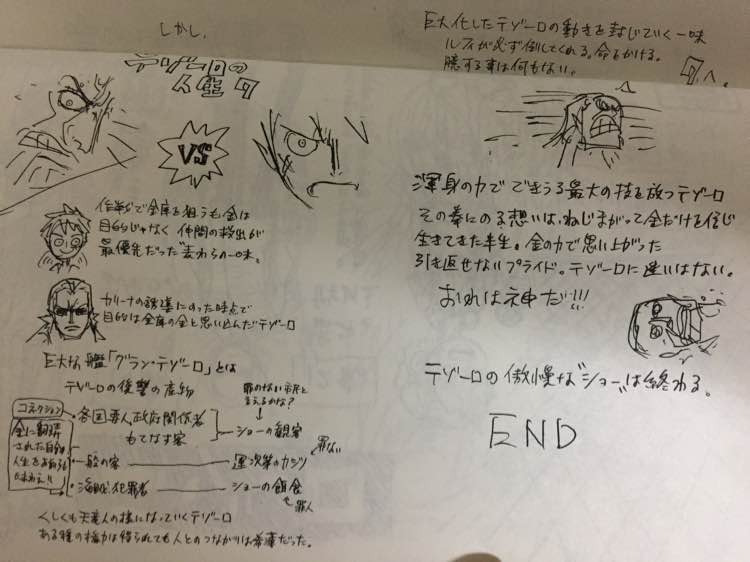 しかし、
テゾーロの
人生 7
VS
作戦で金庫を狙うも金は
目的じゃなく 仲間の救出が
最優先だった"麦わらの一味。
カリーナの誘導にのった時点で
目的は金庫の金と思い込んだテゾーロ
巨大な艦「グラン・テゾーロ」とは
テゾーロの復讐の産物
罪のない市民と
言えるかな?
コレクション
金に翻弄
された自分の
人生を
味わえ!!
各国要人政府関係者
もてなす客
ショーの観客
一般の客
運次第のカジノ
罪ない
海賊、犯罪者
ショーの餌食
罪人
くしくも天竜人の様になっていくテゾーロ
ある種の権力は得られても人とのつながりは希薄だった。
巨大化したテゾーロの動きを封じていく一味
ルフィが必ず倒してくれる。命をかける。
臆する事は何もない。
渾身の力で できうる最大の技を放つテゾーロ
その拳にのる想いは、ねじまがって金だけを信じ
生きてきた半生。金の力で思い上がった
引き返せないプライド。テゾーロに迷いはない。
おれは神だ!!!
テゾーロの傲慢な"ショー"は終わる。
END